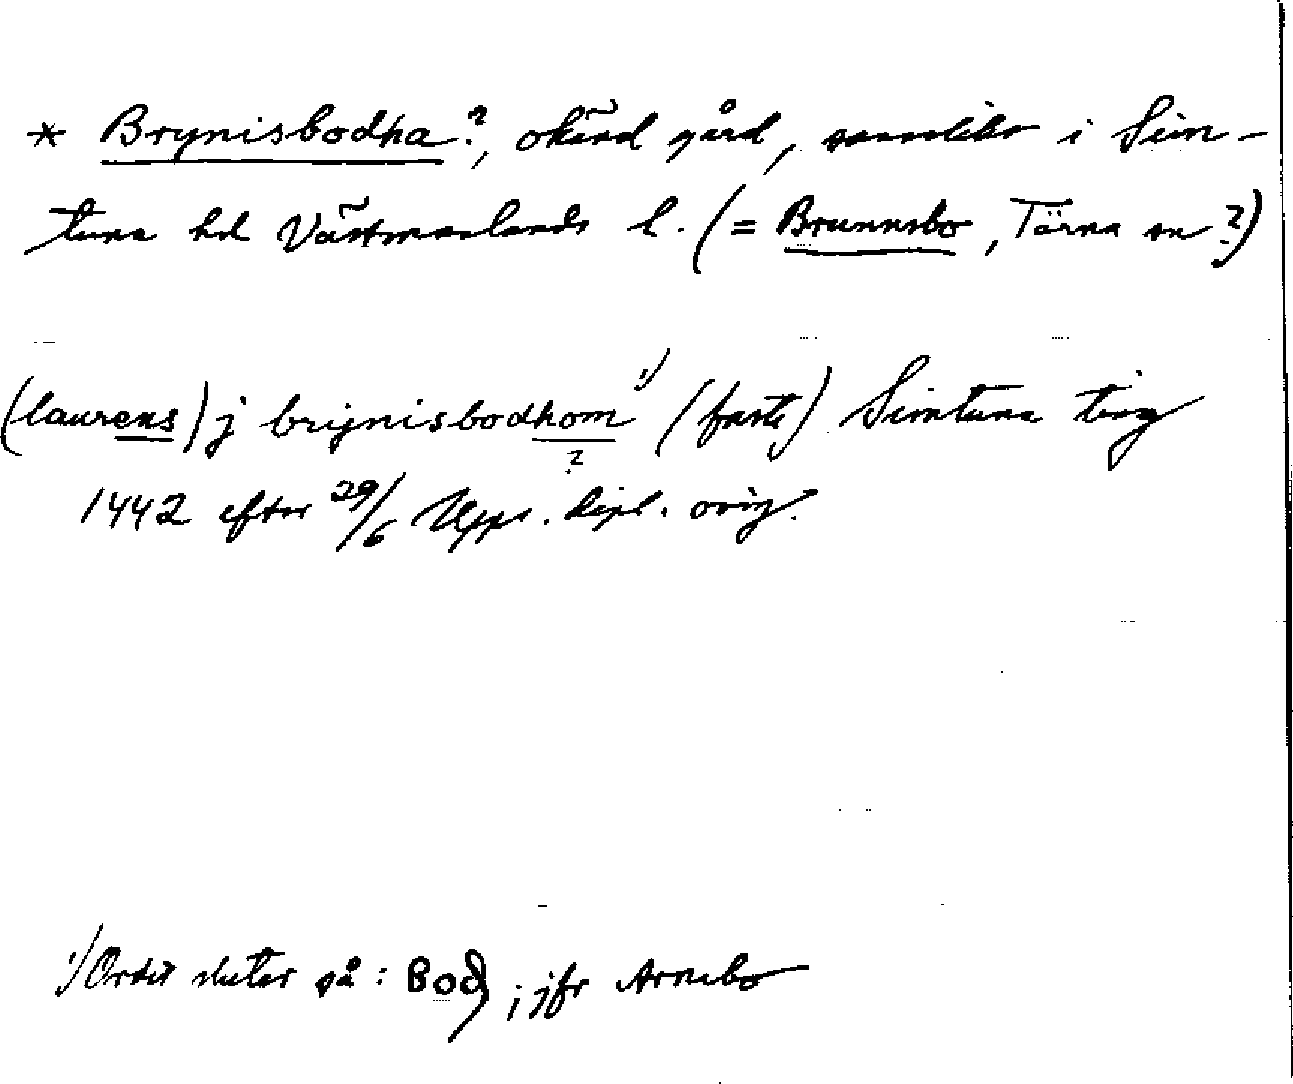 * Brynisbodha?, okänd gård, sannolikt i Sim-
tuna hd Västmanlands l. (= Brunnsbo, Tärna sn?)
(laurens) j brijnisbodhom 1) (faste) Simtuna ting
?
1442 efter 29/6 Upps. dipl. orig.
1) Ordet slutar på: Bod ; jfr Arnebo